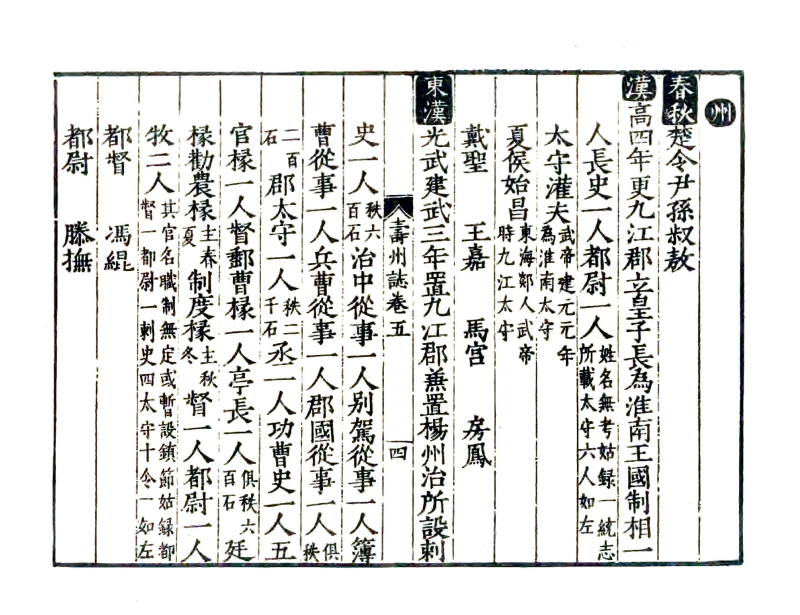 州
春秋楚令尹孫叔敖
漢高四年更九江郡立皇子長為淮南王國制相一
人長史一人都尉一人姓名無考姑録一統志所載太守六人如左
太守灌夫武帝建元元年為淮南太守
夏侯始昌東海郯人武帝時九江太守
戴聖 王嘉 馬宮 房鳳
東漢光武建武三年置九江郡兼置楊州治所設刺
壽州誌卷五 四
史一人秩六百石治中從事一人别駕從事一人簿
曹從事一人兵曹從事一人郡國從事一人俱秩
二百石郡太守一人秩二千石丞一人功曹史一人五
官椽一人督郵曹椽一人亭長一人俱秩六百石廷
椽勸農椽主春夏制度椽主秋冬督一人都尉一人
牧二人其官名職制無定或暫設鎮節姑録都督一都尉一刺史四太守十令一如左
都督 馮緄
都尉 滕撫